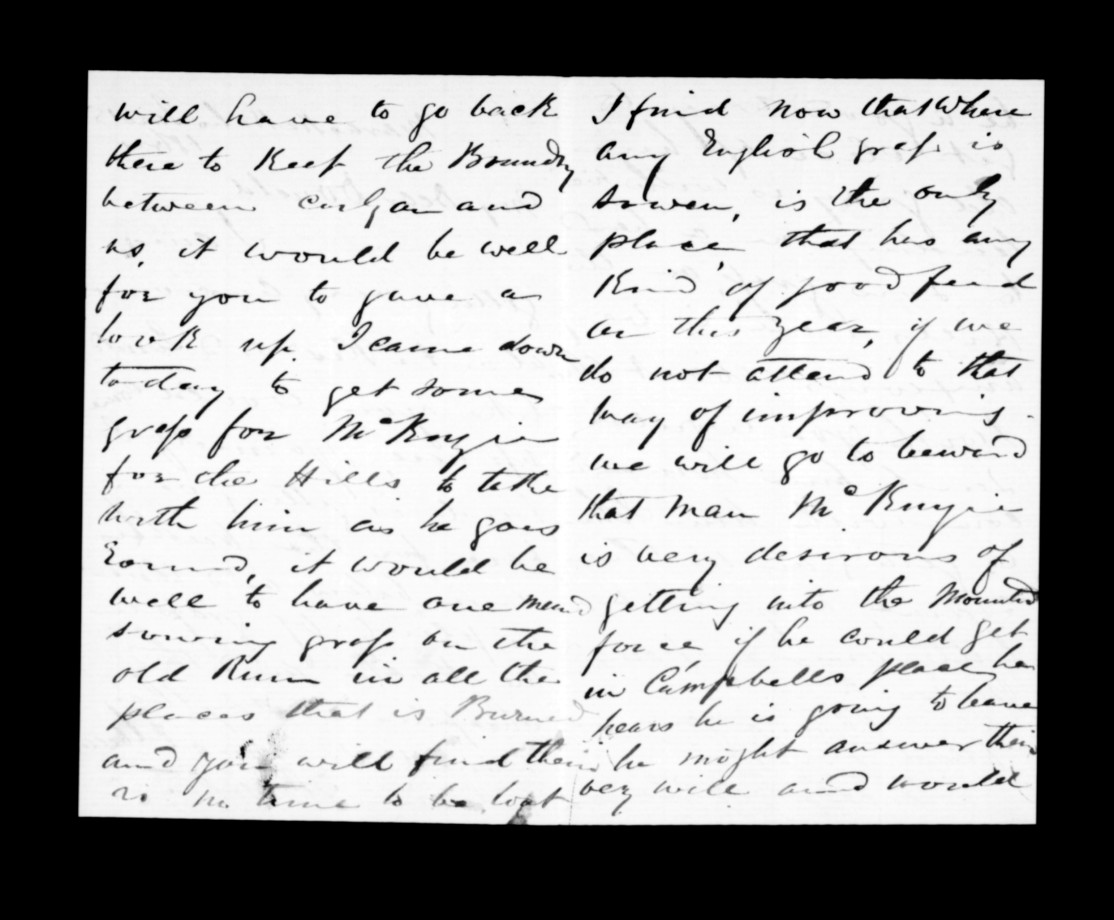 will have to go back
there to Keep the Boundry
between and
us, it would be well
for you to gave a
look up. I came down
to day to get some
grass for McKnzie
for the Hills to take
with him as he goes
Round, it would be
well to have one man
sowing grass on the
old Run in all the
places that is Burned
and you will find their
is no time to be lost
I find now that where
any English grass is
sowen, is the only
place, that has any
Kind of good feed
on this year, if we
do not attend to that
way of improving
we will go to beward
that man McKnzie
is very desirous of
getting into the Mounted
force if he could get
in Campbells place he
hears he is going to leave
he might answer their
very well and would